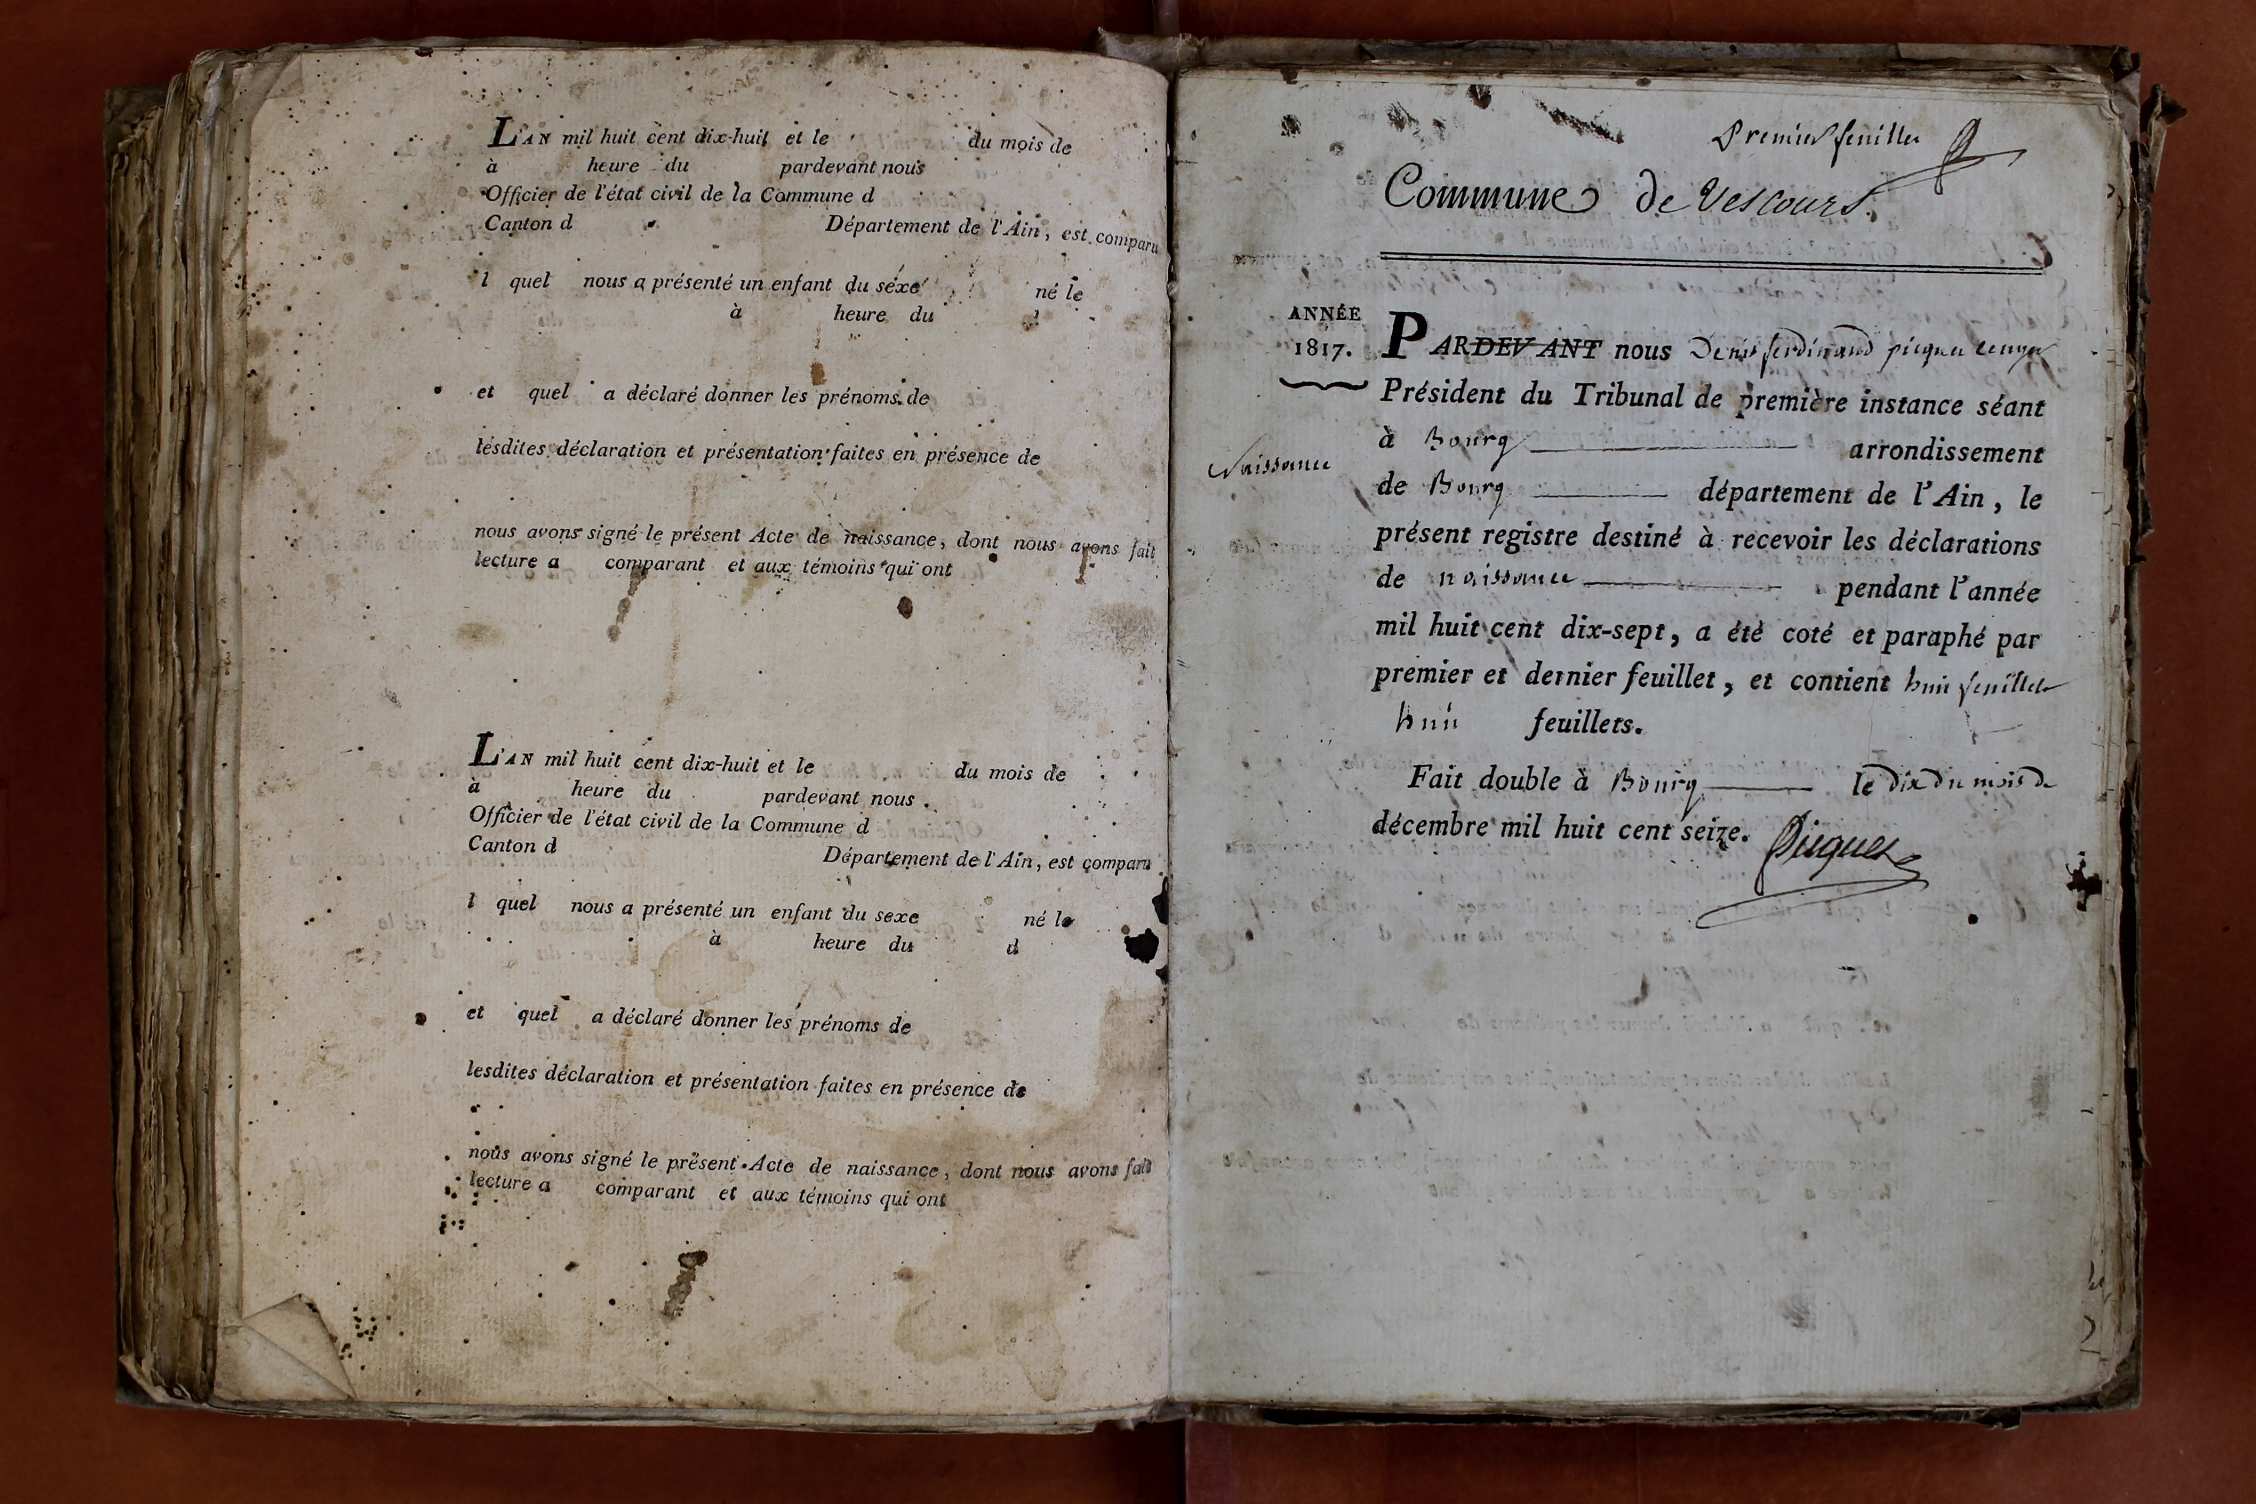 L'AN mil huit cent dix-huit et le du mois de
à heure du pardevant nous
Officier de l'état civil de la Commune d
Canton d Département de l'Ain, est comparu
l quel nous a présenté un enfant du sexe né le
à heure du
et quel a déclaré donner les prénoms de
lesdites déclaration et présentation faites en présence de
nous avons signé le présent Acte de naissance, dont nous avons fait
lecture a comparant et aux témoins qui ont
L'AN mil huit cent dix-huit et le du mois de
à heure du pardevant nous
Officier de l'état civil de la Commune d
Canton d Département de l'Ain, est comparu
l quel nous a présenté un enfant du sexe né le
à heure du d
et quel a déclaré donner les prénoms de
lesdites déclaration et présentation faites en présence de
nous avons signé le présent Acte de naissance, dont nous avons fait
lecture a comparant et aux témoins qui ont
Premier feuillet
Commune de Vescours.
ANNÉE
1817.
Naissance
PARDEVANT nous Denis ferdinand picquet
Président du Tribunal de première instance séant
à Bourg arrondissement
de Bourg département de l'Ain, le
présent registre destiné à recevoir les déclarations
de naissance pendant l'année
mil huit cent dix-sept, a été coté et paraphé par
premier et dernier feuillet, et contient huit feuillets
huit feuillets.
Fait double à Bourg le dix du mois de
décembre mil huit cent seize. Picquet